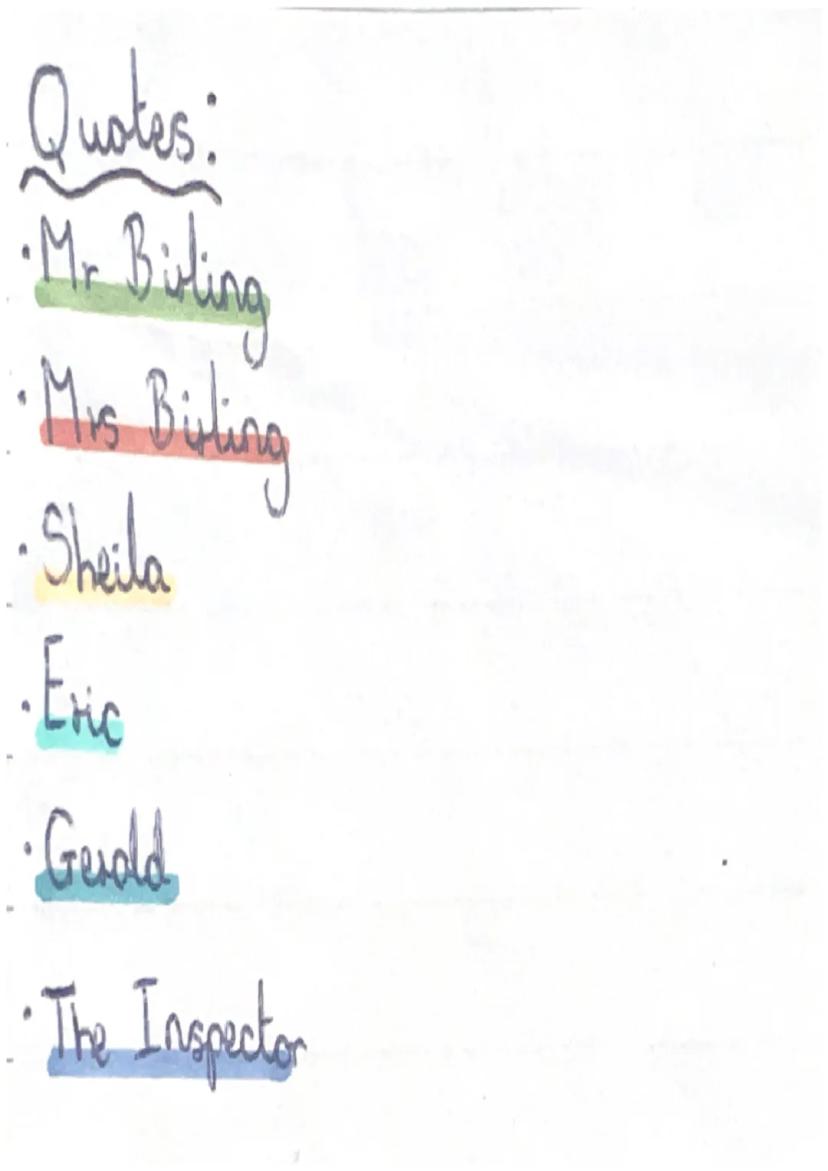 Quotes:
· Mr Birling
· Mrs Birling
· Sheila
· Eric
· Gerald
· The Inspector